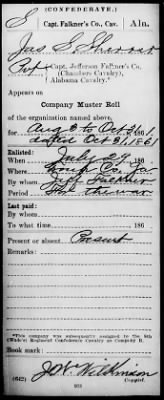 (CONFEDERATE.)
S Capt. Falkner's Co., Cav. Ala.
Jas S
Pvt, Capt. Jefferson Falkner's Co.
(Chambers Cavalry),
Alabama Cavalry.*
Appears on
Company Muster Roll
of the organization named above,
for Aug 6 to Oct 31, 1861.
dated Oct 31, 1861
Enlisted:
When July 27, 186
Where Troup Co. Ga
By whom Jeff Falkner
Period the war
Last paid:
By whom
To what time 186
Present or absent Present
Remarks:
*This company was subsequently assigned to the 8th
(Wade's) Regiment Confederate Cavalry as Company
Book mark:
J W Wilkinson
(642) Copyist.